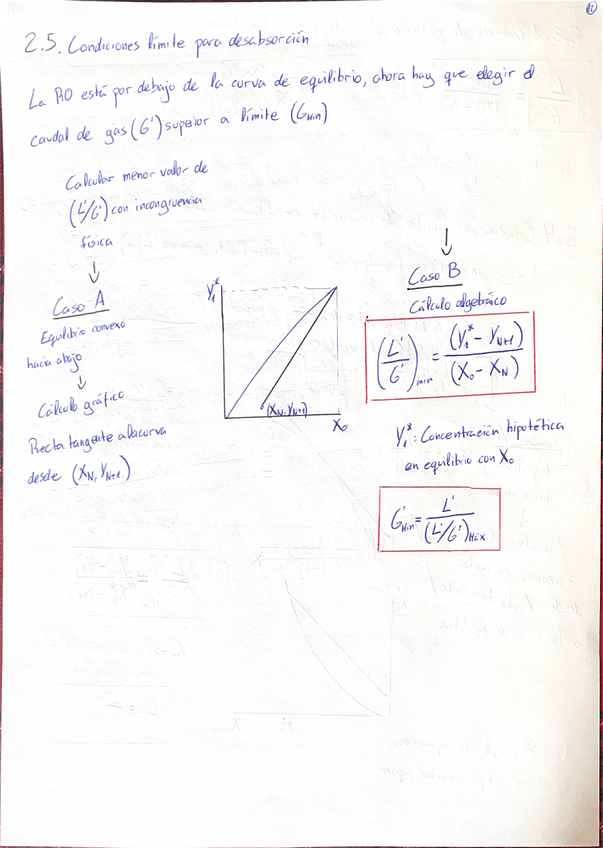 2.5. Condiciones límite para desabsorción
La RO está por debajo de la curva de equilibrio, ahora hay que elegir el
caudal de gas (G') superior a límite (G_Min)
Calcular menor valor de
(L'/G') con incongruencia
física
↓
Caso A
Equilibrio convexo
hacia abajo
↓
Cálculo gráfico
Recta tangente a la curva
desde (X_N, Y_N+1)
Y_1*
(X_N, Y_N+1)
X_0
↓
Caso B
Cálculo algebráico
(L'/G')_min = (Y_1* - Y_N+1)/(X_0 - X_N)
Y_1*: Concentración hipotética
en equilibrio con X_0
G'_Min = L'/(L'/G')_Máx